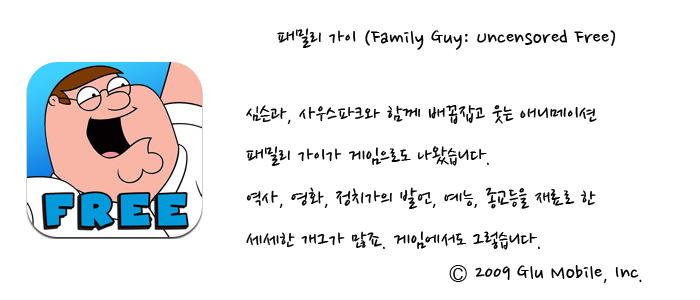 패밀리 가이 (Family Guy: Uncensored Free)
심슨과, 사우스파크와 함께 배꼽잡고 웃는 애니메이션
패밀리 가이가 게임으로도 나왔습니다.
역사, 영화, 정치가의 발언, 예능, 종교등을 재료로 한
세세한 개그가 많죠. 게임에서도 그렇습니다.
FREE
© 2009 Glu Mobile, Inc.